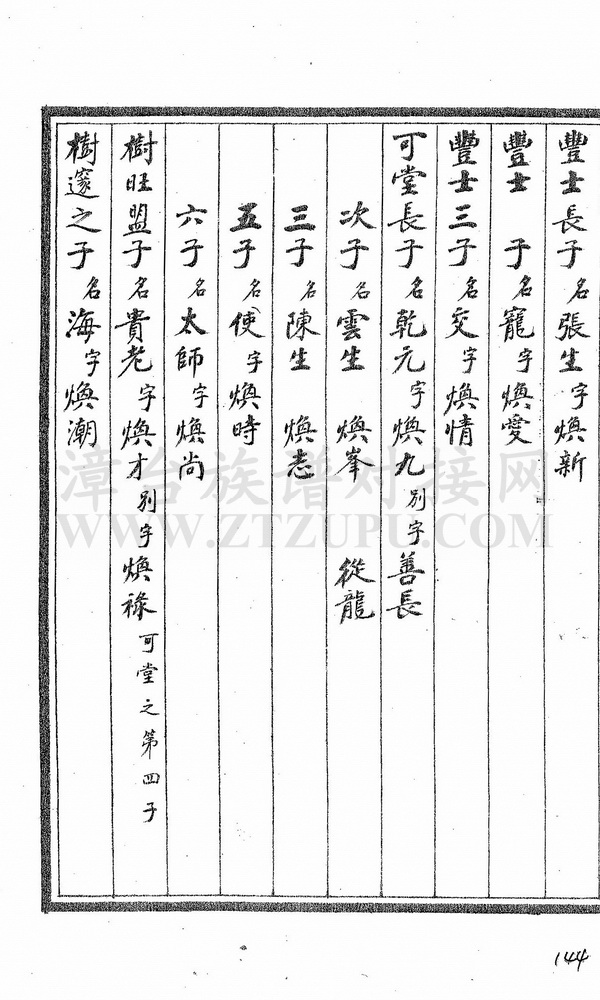 豐士長子名張生字煥新
豐士 子名寵字煥愛
豐士三子名交字煥情
可堂長子名乾元字煥九別字善長
次子名雲生 煥峯 從龍
三子名陳生 煥志
五子名使字煥時
六子名太師字煥尚
樹旺盟子名貴老字煥才別字煥祿可堂之第四子
樹邃之子名海字煥潮
漳台族谱对接网
WWW.ZTZUPU.COM
144